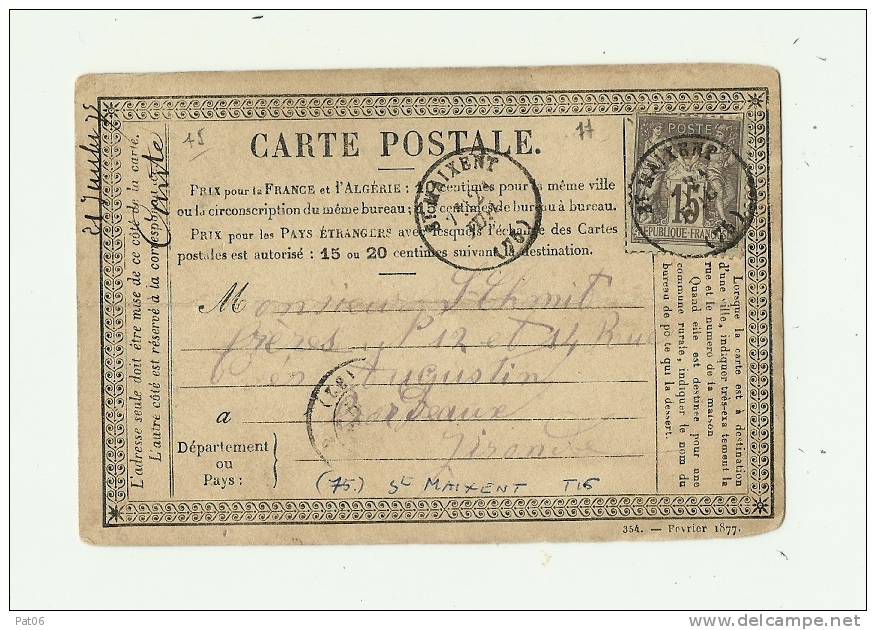 CARTE POSTALE.
15
17
PRIX pour la FRANCE et l'ALGÉRIE : 15 centimes pour la même ville
ou la circonscription du même bureau ; 15 centimes de bureau à bureau.
PRIX pour les PAYS ÉTRANGERS avec lesquels l'échange des Cartes
postales est autorisé : 15 ou 20 centimes suivant la destination.
Sт MAIXENT
(75)
POSTE
15
RÉPUBLIQUE FRANÇAISE
Sт MAIXENT
(75)
Monsieur Schmit
frères, 12 et 14 Rue
Augustin
a Bordeaux
Gironde
Département
ou
Pays :
(75) St MAIXENT T16
L'adresse seule doit être mise de ce côté de la carte.
L'autre côté est réservé à la correspondance.
Carte
Lorsque la carte est à destination
d'une ville, indiquer très-exactement la
rue et le numéro de la maison
Quand elle est destinée pour une
commune rurale, indiquer le nom du
bureau de poste qui la dessert.
354. — Février 1877.
Pat06
delcampe.net